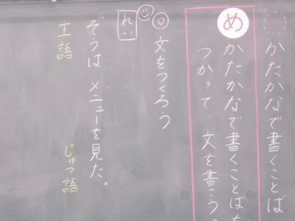 かたかなで書くことば
め
かたかなで書くことばを
つかって、文を書こう
◎文をつくろう
れい
ぞうは メニューを見た。
主語 じゅつ語